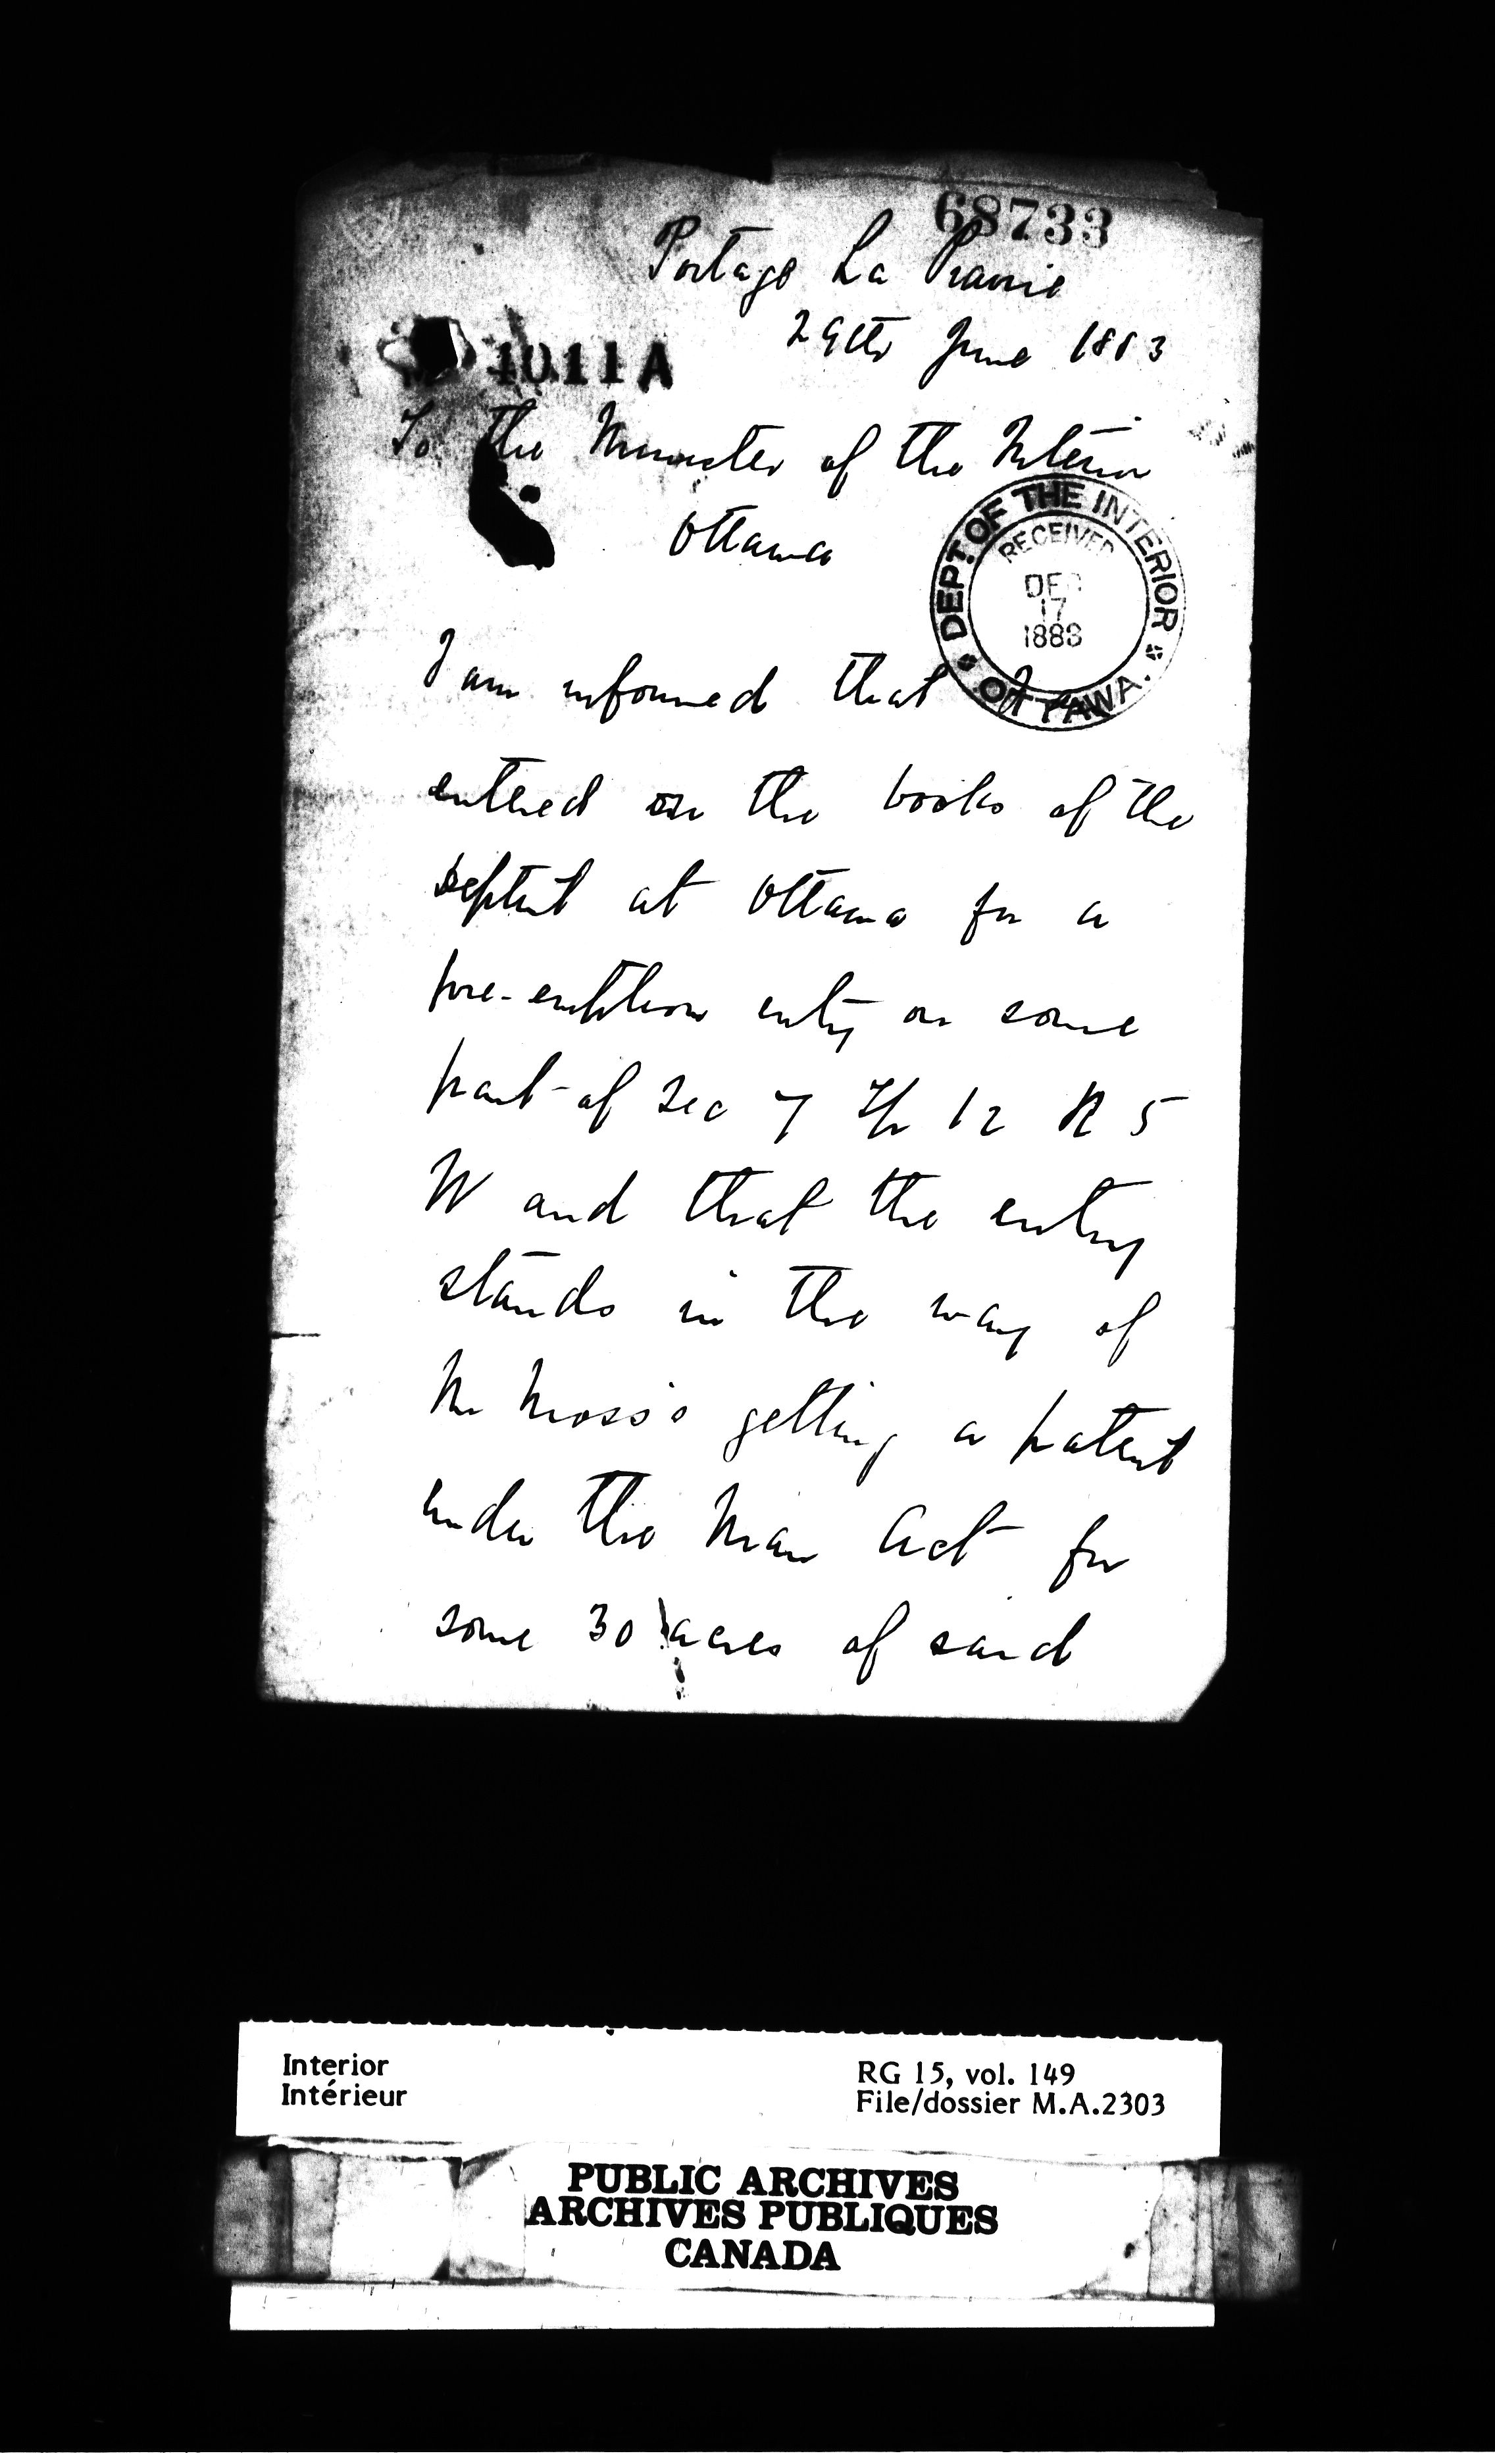 68733
Portage La Prairie
29th June 1883
1011A
To the Minister of the Interior
Ottawa
DEPT. OF THE INTERIOR
RECEIVED
DEC
17
1883
OTTAWA.
I am informed that I am
entered on the books of the
Deptmt at Ottawa for a
pre-emption entry on some
part of Sec 7 Tp 12 R 5
W and that the entry
stands in the way of
Mr Moss's getting a patent
under the Man Act for
some 30 acres of said
Interior
Intérieur
RG 15, vol. 149
File/dossier M.A.2303
PUBLIC ARCHIVES
ARCHIVES PUBLIQUES
CANADA